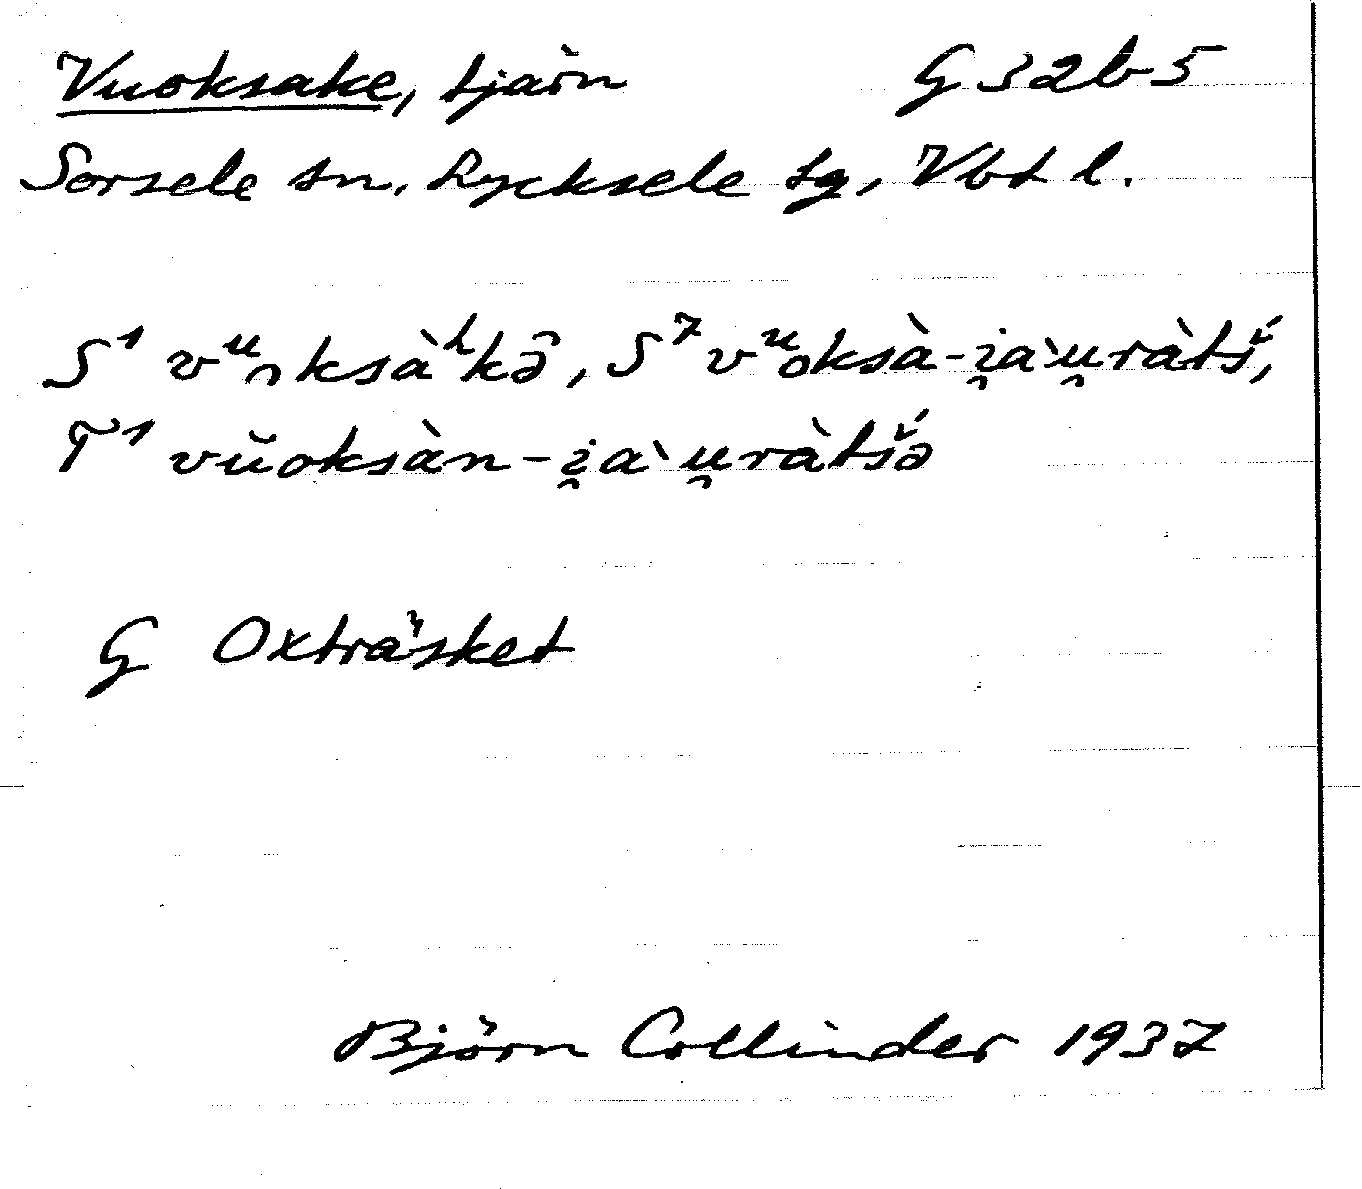 Vuoksake, tjärn G 32 b 5
Sorsele sn, Lycksele tg, Vbt l.
S¹ vᵘoksàʰkə̑, S⁷ vᵘoksà-i̯a`u̯ràtš́,
T¹ vŭoksàn-i̯a`u̯ràtš́ə
G Oxträsket
Björn Collinder 1937